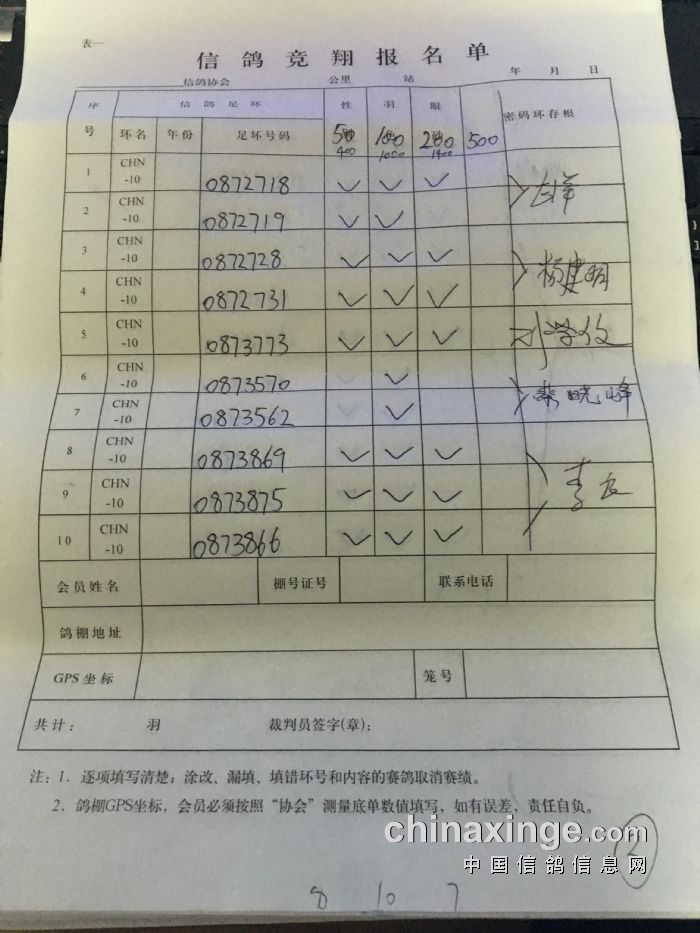 表一
信鸽竞翔报名单
信鸽协会 公里 站 年 月 日
序号 信鸽足环 性 羽 眼 密码环存根
环名 年份 足环号码 50 100 200 500
400 1000 1400
1 CHN-10 0872718 ✓ ✓ ✓
2 CHN-10 0872719 ✓ ✓
3 CHN-10 0872728 ✓ ✓ ✓ 杨建明
4 CHN-10 0872731 ✓ ✓ ✓
5 CHN-10 0873773 ✓ ✓ ✓
6 CHN-10 0873570 ✓
7 CHN-10 0873562 ✓ 晓峰
8 CHN-10 0873869 ✓ ✓ ✓
9 CHN-10 0873875 ✓ ✓ ✓
10 CHN-10 0873866 ✓ ✓ ✓
会员姓名 棚号证号 联系电话
鸽棚地址
GPS坐标 笼号
共计： 羽 裁判员签字(章)：
注：1．逐项填写清楚；涂改、漏填、填错环号和内容的赛鸽取消赛绩。
2．鸽棚GPS坐标，会员必须按照“协会”测量底单数值填写，如有误差，责任自负。
chinaxinge.com
中国信鸽信息网
2
8 10 7